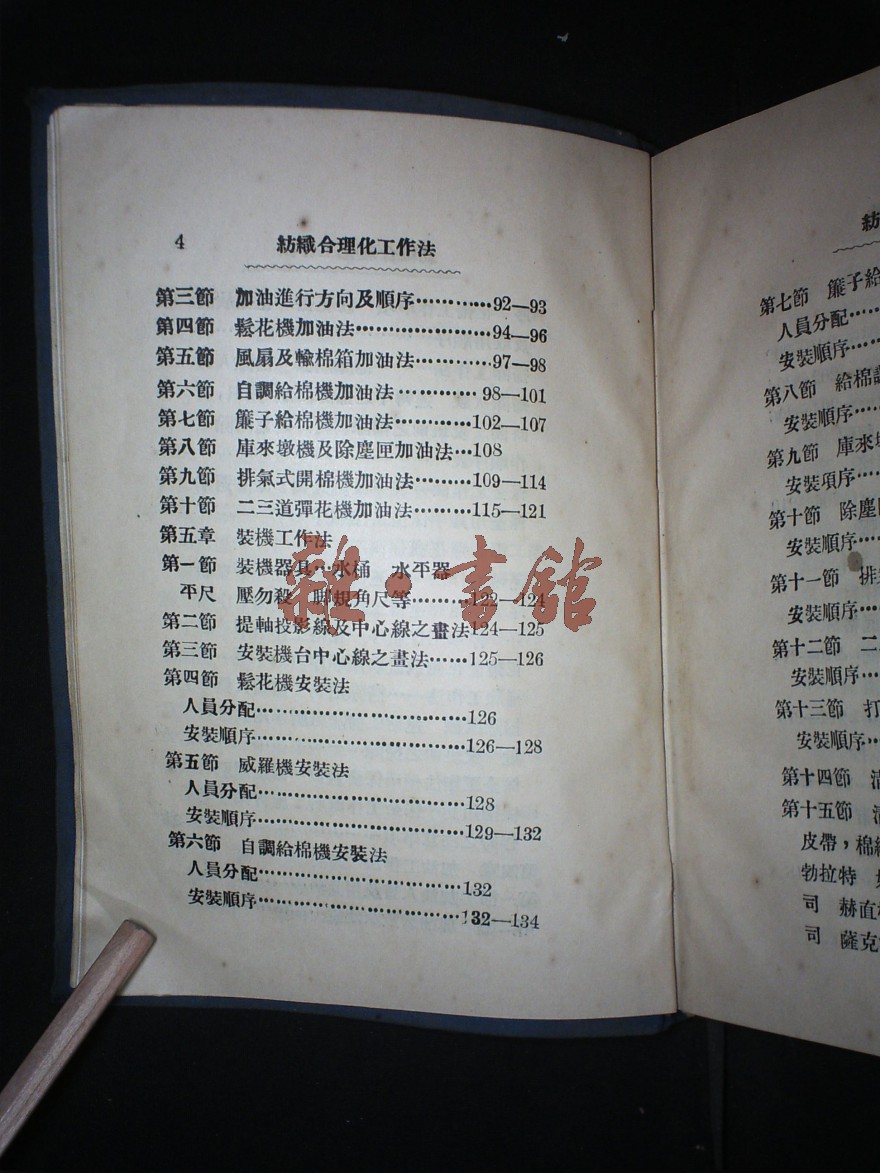 4 紡織合理化工作法
第三節 加油進行方向及順序⋯⋯⋯⋯92—93
第四節 鬆花機加油法⋯⋯⋯⋯⋯⋯94—96
第五節 風扇及輸棉箱加油法⋯⋯⋯⋯97—98
第六節 自調給棉機加油法⋯⋯⋯⋯98—101
第七節 簾子給棉機加油法⋯⋯⋯⋯102—107
第八節 庫來墩機及除塵匣加油法⋯108
第九節 排氣式開棉機加油法⋯⋯⋯109—114
第十節 二三道彈花機加油法⋯⋯⋯115—121
第五章 裝機工作法
第一節 裝機器具⋯水桶 水平器
平尺 壓勿殺 規角尺等⋯⋯⋯122—124
第二節 提軸投影線及中心線之畫法124—125
第三節 安裝機台中心線之畫法⋯⋯125—126
第四節 鬆花機安裝法
人員分配⋯⋯⋯⋯⋯⋯⋯⋯⋯126
安裝順序⋯⋯⋯⋯⋯⋯⋯⋯⋯126—128
第五節 威羅機安裝法
人員分配⋯⋯⋯⋯⋯⋯⋯⋯⋯128
安裝順序⋯⋯⋯⋯⋯⋯⋯⋯⋯129—132
第六節 自調給棉機安裝法
人員分配⋯⋯⋯⋯⋯⋯⋯⋯⋯132
安裝順序⋯⋯⋯⋯⋯⋯⋯⋯⋯132—134
雜·書館
紡
第七節 簾子給
人員分配⋯⋯
安裝順序⋯⋯
第八節 給棉調
安裝順序⋯⋯
第九節 庫來墩
安裝項序⋯⋯
第十節 除塵
安裝順序⋯⋯
第十一節 排
安裝順序⋯⋯
第十二節 二
安裝順序⋯⋯
第十三節 打
安裝順序⋯⋯
第十四節 清
第十五節 清
皮帶,棉
勃拉特
司 赫直
司 薩克